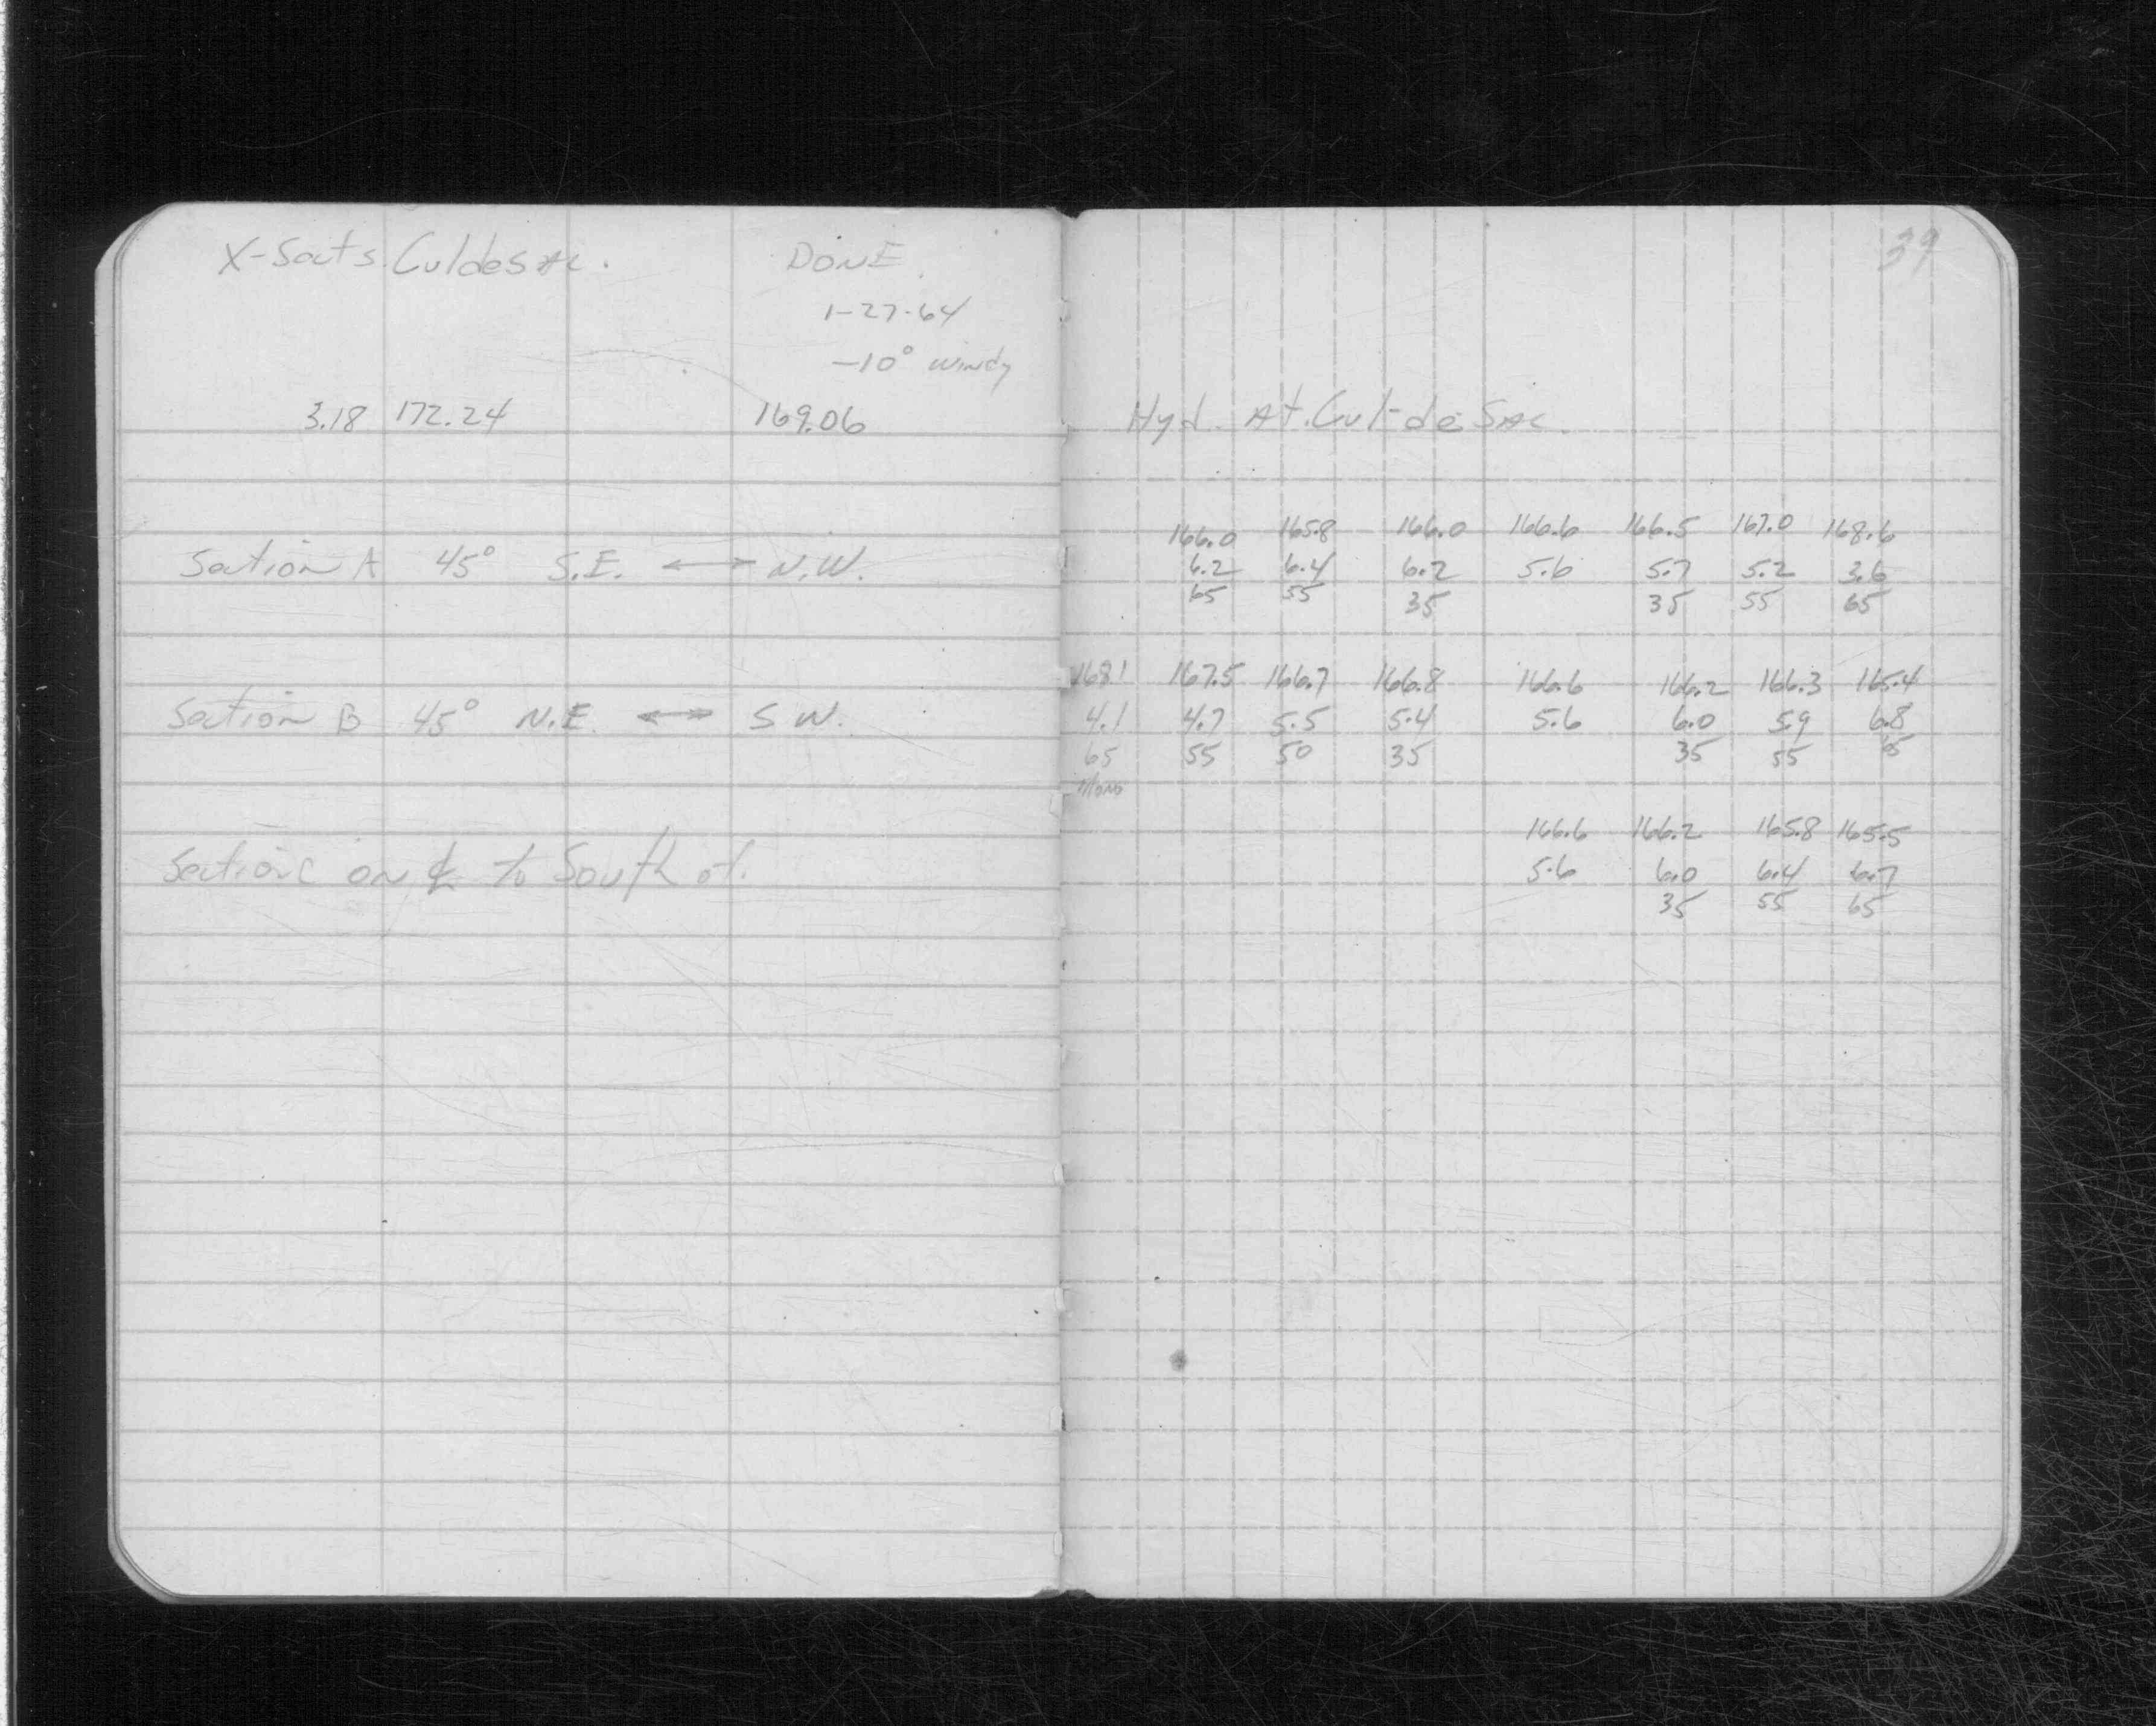 X-Sects. Culdesac.
DONE
1-27-64
-10° windy
3.18 172.24 169.06
Section A 45° S.E. ↔ N.W.
Section B 45° N.E. ↔ S W.
Section C on ℄ to South of.
39
Hyd. At. Cul-de Sac.
166.0 165.8 166.0 166.6 166.5 167.0 168.6
6.2 6.4 6.2 5.6 5.7 5.2 3.6
65 55 35 35 55 65
168.1 167.5 166.7 166.8 166.6 166.2 166.3 165.4
4.1 4.7 5.5 5.4 5.6 6.0 5.9 6.8
65 55 50 35 35 55 65
166.6 166.2 165.8 165.5
5.6 6.0 6.4 6.7
35 55 65